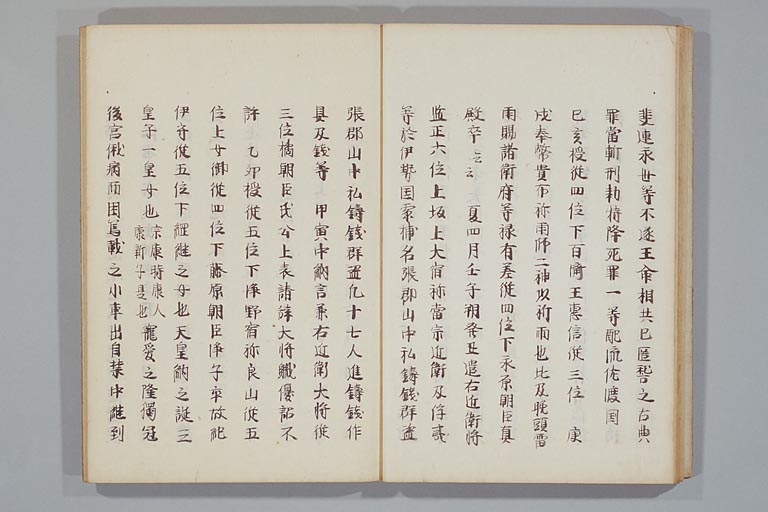 斐連永世等不遂王命相共已匿誓之古典
罪當斬刑勅特降死罪一等配流佐渡国
己亥授從四位下百濟王惠信從三位　庚
戌奉幣貴布祢雨師二神以祈雨也比及晚頭雷
雨賜諸衛府等禄有差從四位下永原朝臣真
殿卒云云　夏四月壬子朔癸丑遣右近衛將
監正六位上坂上大宿祢當宗近衛及俘夷
等於伊勢国索捕名張郡山中私鑄錢群盗
張郡山中私鑄錢群盗凡十七人進鑄錢作
具及錢等　甲寅中納言兼右近衛大將從
三位橘朝臣氏公上表請辞大將職優詔不
許　乙卯授從五位下浄野宿祢良山從五
位上女御從四位下藤原朝臣浄子卒故紀
伊守從五位下継之女也天皇納之誕三
皇子一皇女也宗康時康人康新子是也寵愛之隆獨冠
後宮俄病而困篤載之小車出自禁中纔到